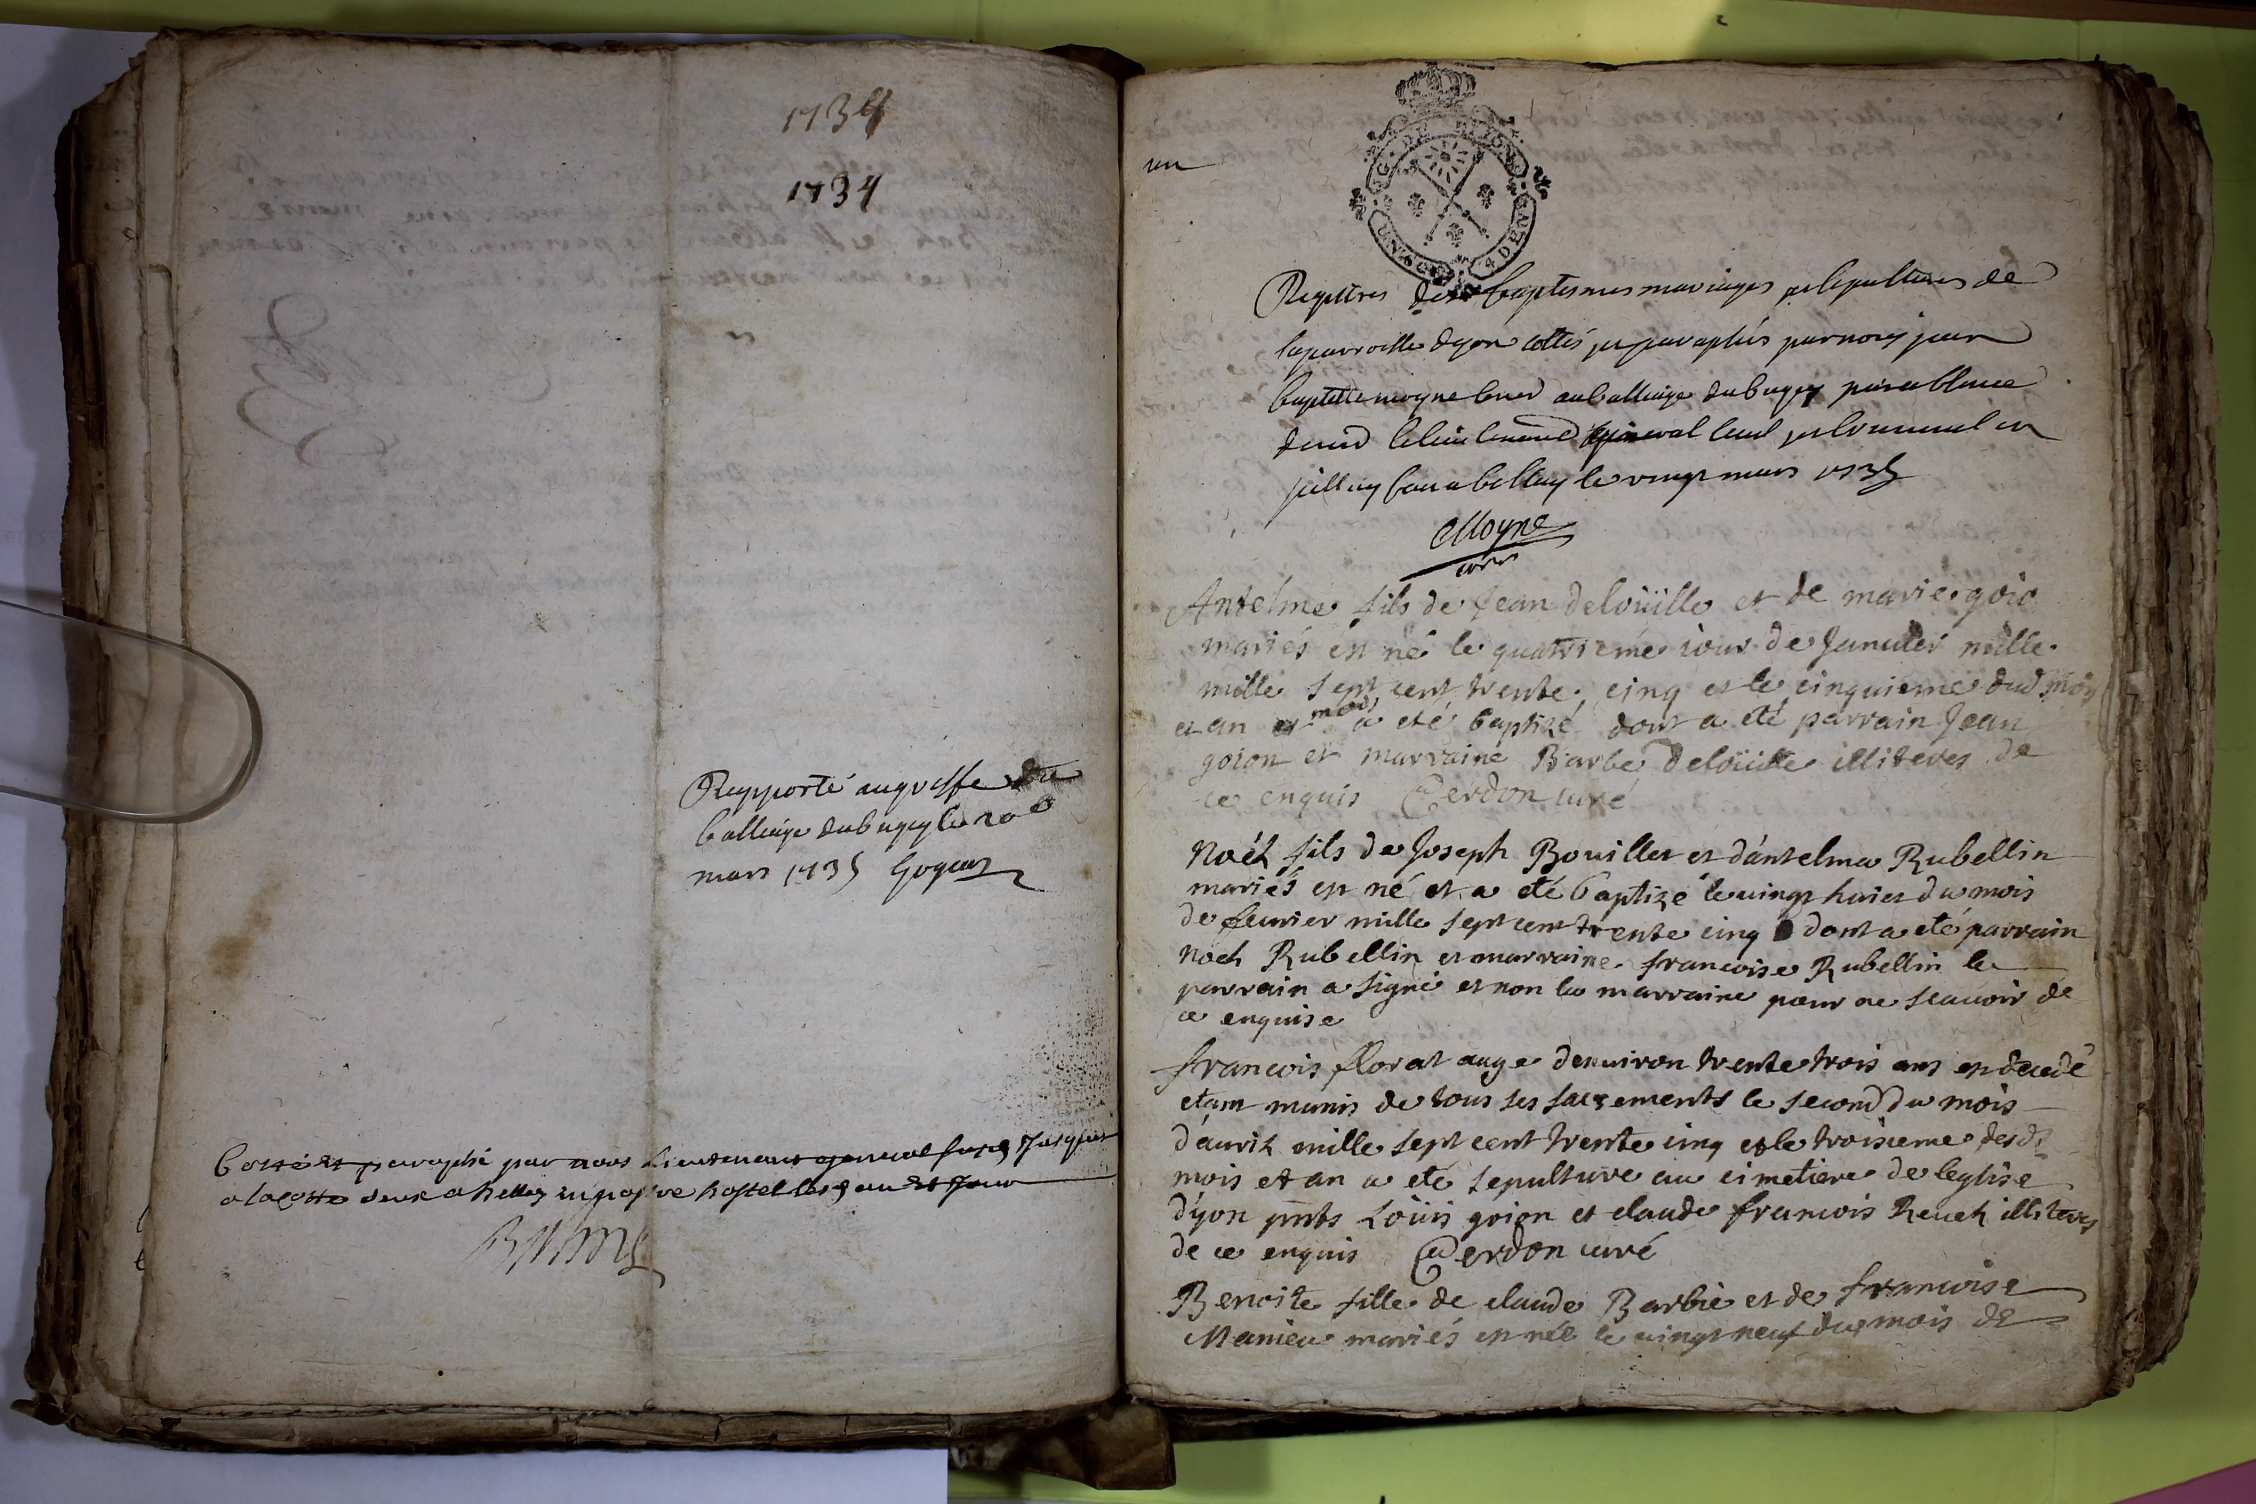 1734
1734
Repporté au greffe du
balliage du bugey le 20e
mars 1735 Goguet
Cotté et paraphé par nous Lieutenant general jusques
a la cotte deux a belley en nostre hostel les an et jour
un
GE DE DIION
UN SO 4 DEN
Registres des baptesmes mariages et sepultures de
la parroisse dyon cottés et paraphés par nous jean
baptiste moyne au balliage du bugey par ablance
le lieutenant general
fait a belley le vingt mars 1735
Moyne
Antelme fils de Jean deloüille et de marie goio
mariés est né le quatriéme jour de Januier mille
mille sept cent trente cinq et le cinquieme dud mois
et an mois a eté baptizé dont a eté parrain Jean
goion et marraine Barbe deloüille illiteres de
ce enquis Cerdon curé
Noél fils de Joseph Bouillet et d'antelma Rubellin
mariés est né et a eté baptizé le vingt huict du mois
de feurier mille sept cent trente cinq dont a eté parrain
Noel Rubellin et marraine francoise Rubellin le
parrain a signé et non la marraine pour ne scauoir de
ce enquise
francois florat auge denuiron trente trois ans est decedé
etant munis de tous ses sacrements le second du mois
d'auril mille sept cent trente cinq et le troisieme desd
mois et an a eté sepulture au cimetiere de leglise
d'yon pnts Loüis goion et claude francois Reuel illiteres
de ce enquis Cerdon curé
Benoite fille de claude Barbie et de francoise
Manieu mariés est née le vingt neuf du mois de